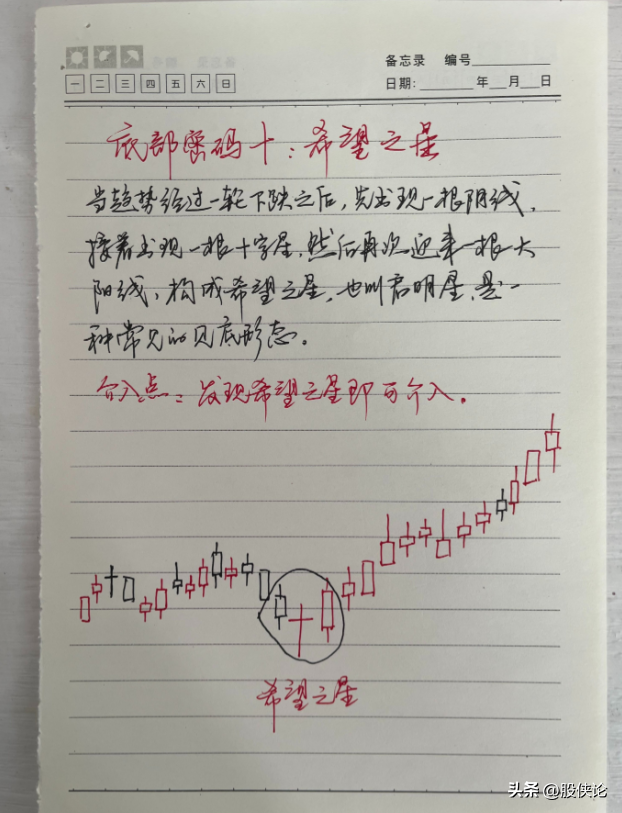 备忘录 编号
一 二 三 四 五 六 日
日期： 年 月 日
底部密码十：希望之星
当趋势经过一轮下跌之后，先出现一根阴线，
接着出现一根十字星，然后再次迎来一根大
阳线，构成希望之星，也叫启明星，是一
种常见的见底形态。
介入点：发现希望之星即可介入。
希望之星
头条 @股侠论